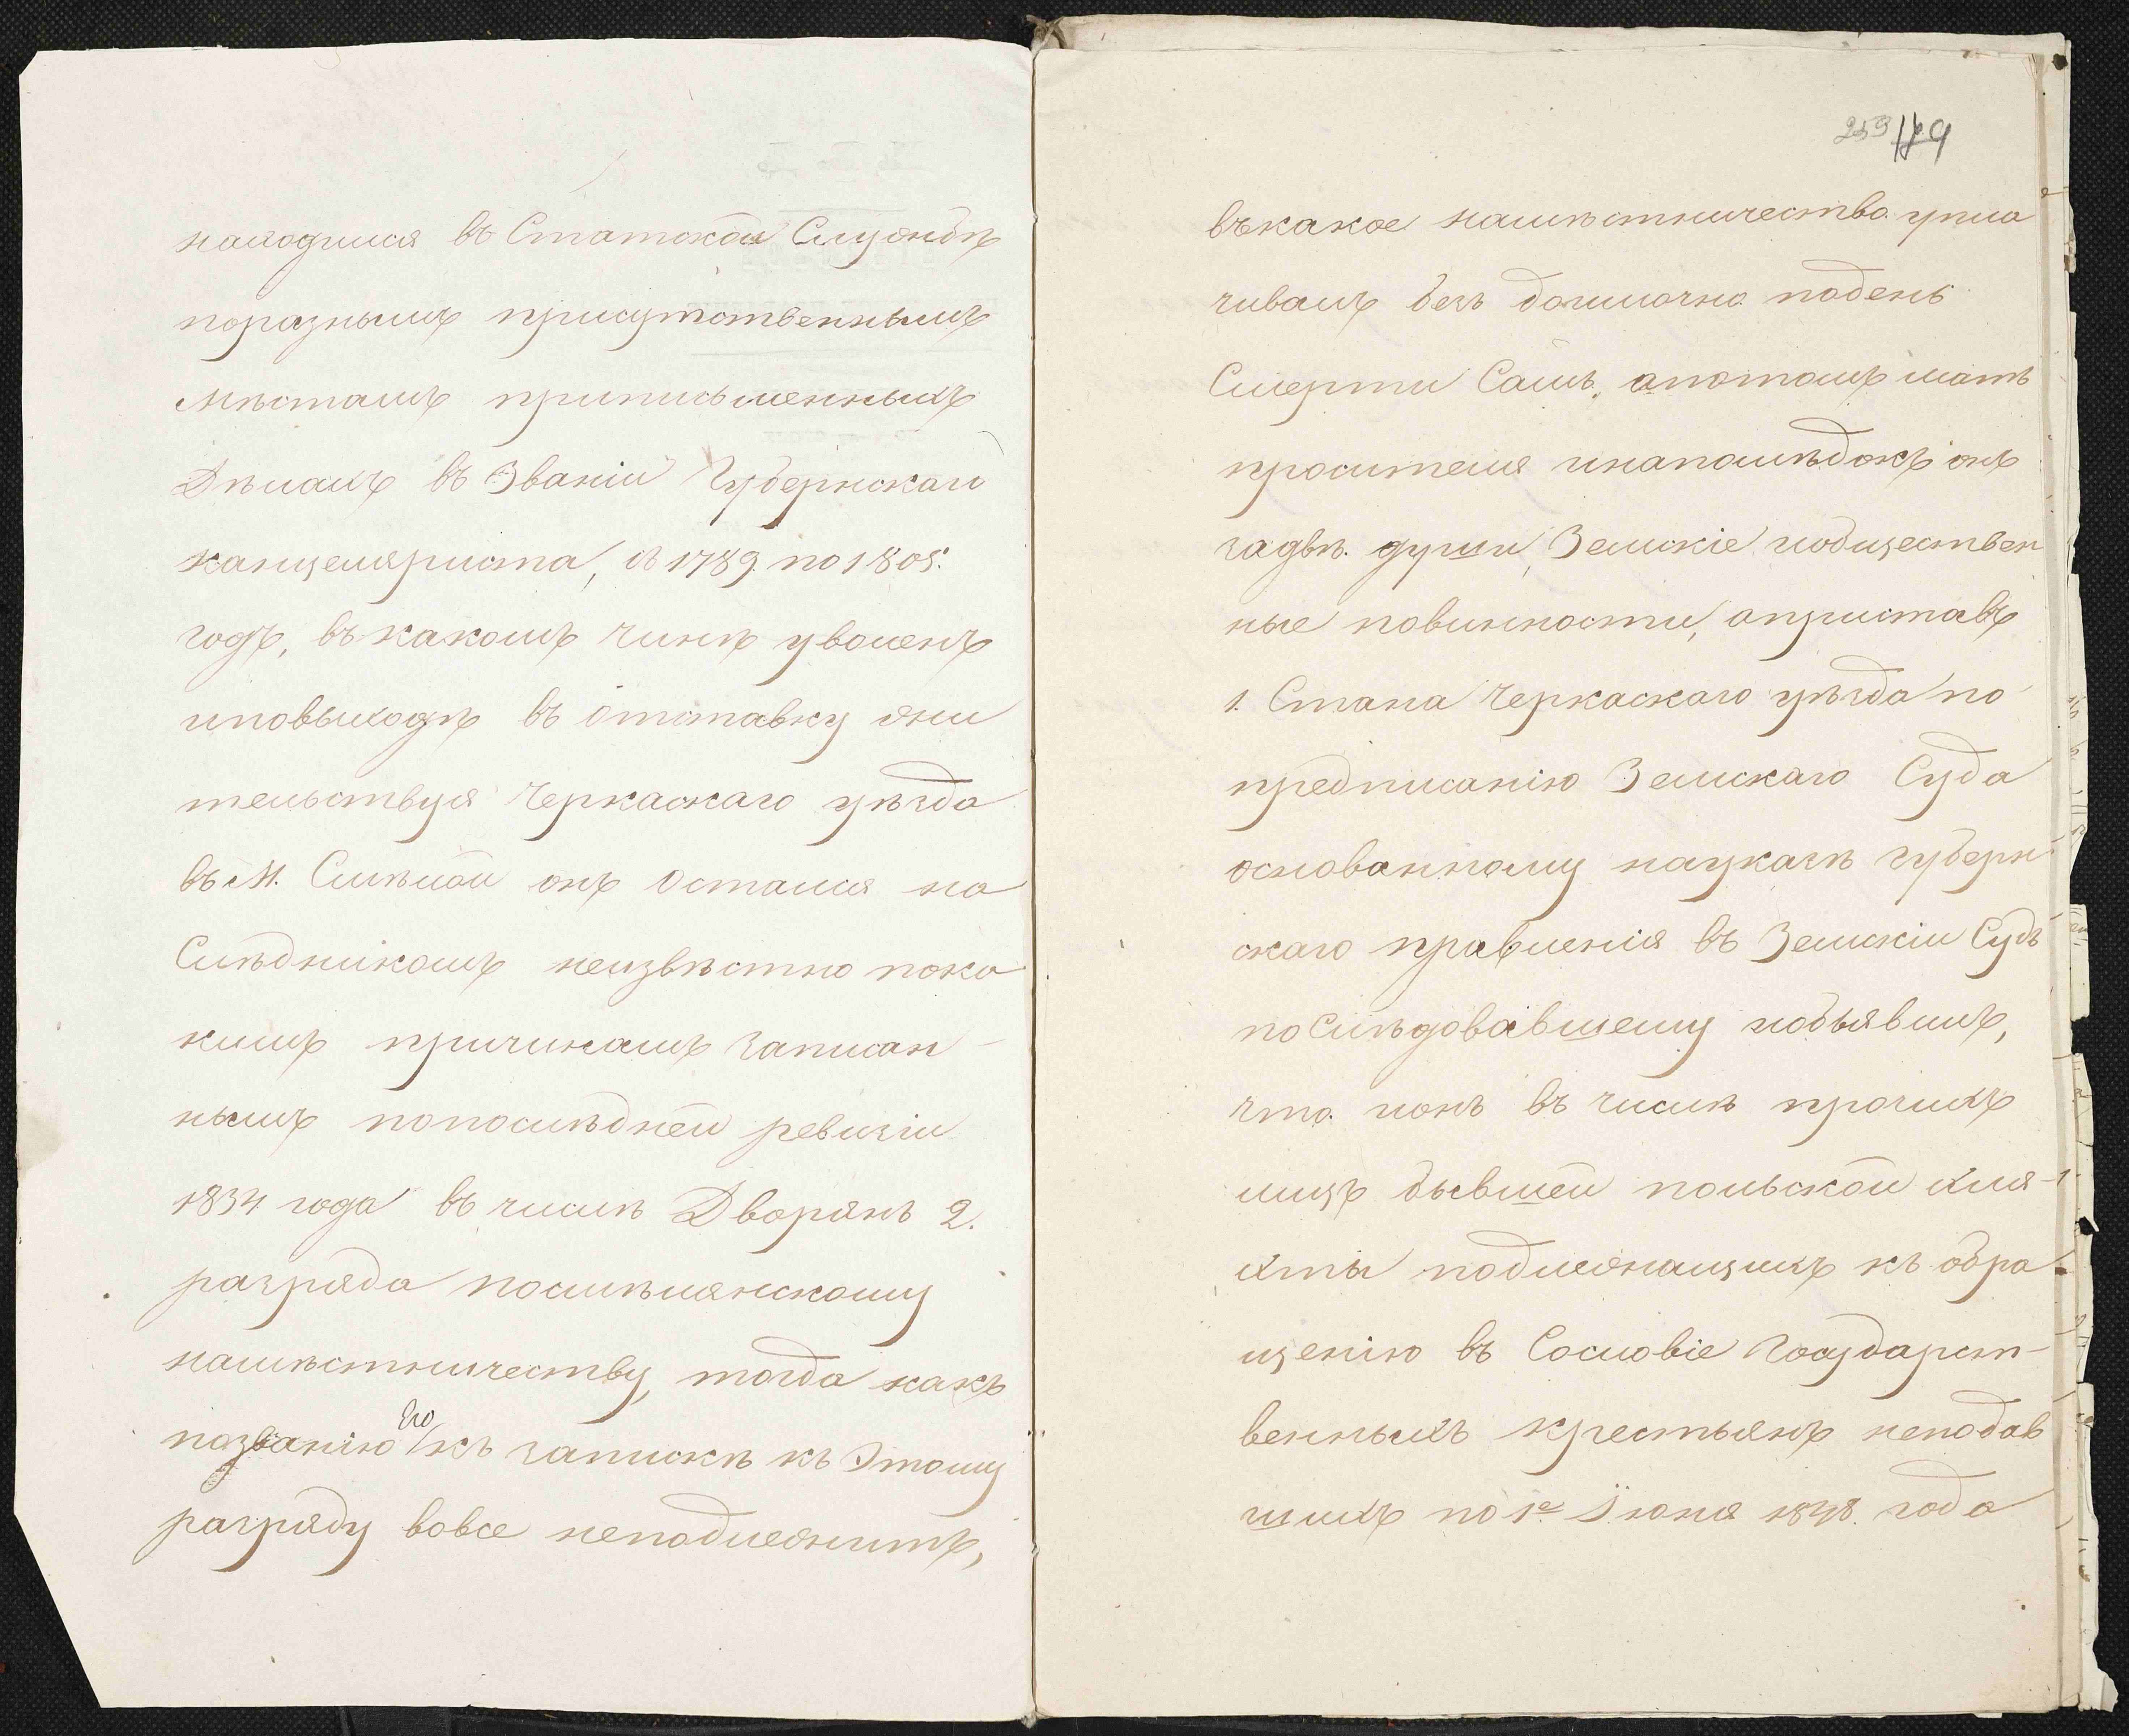 находился въ Статской Службѣ
поразнымъ присутственнымъ
мѣстамъ приписьменныхъ
Дѣлахъ въ Званіи Губернскаго
канцеляриста, съ 1789. по 1805.
годъ, въкакомъ чинѣ уволенъ
иповыходѣ въ отставку жи
тельствуя Черкаскаго уѣзда
въ М. Смѣлой онъ остался на
Слѣдникомъ неизвѣстно пока
кимъ причинамъ записан-
нымъ попослѣдней ревизіи
1834 года въ числѣ Дворянъ 2.
разряда посмѣлянскому
намѣстничеству, тогда какъ
позванію его къ запискѣ къ Этому
разряду вовсе неподлежитъ,
253 179
въкакое намѣстничество упла
чивалъ безъ доимочно подень
Смерти Самъ, апотомъ мать
просителя инапослѣдокъ онъ
задвѣ души, Земскіе иобществен
ные повинности, априставъ
1. Стана Черкаскаго уѣзда по
предписанію Земскаго Суда
основанному науказѣ губерн
скаго правленія въ Земскій Судъ
послѣдовавшему иобъявилъ,
что ионъ въ числѣ прочихъ
лицъ бывшей польской шля-
хты подлежащихъ къ обра
щенію въ Сословіе Государст-
венныхъ крестьянъ неподав
шихъ по 1е Іюня 1848. года